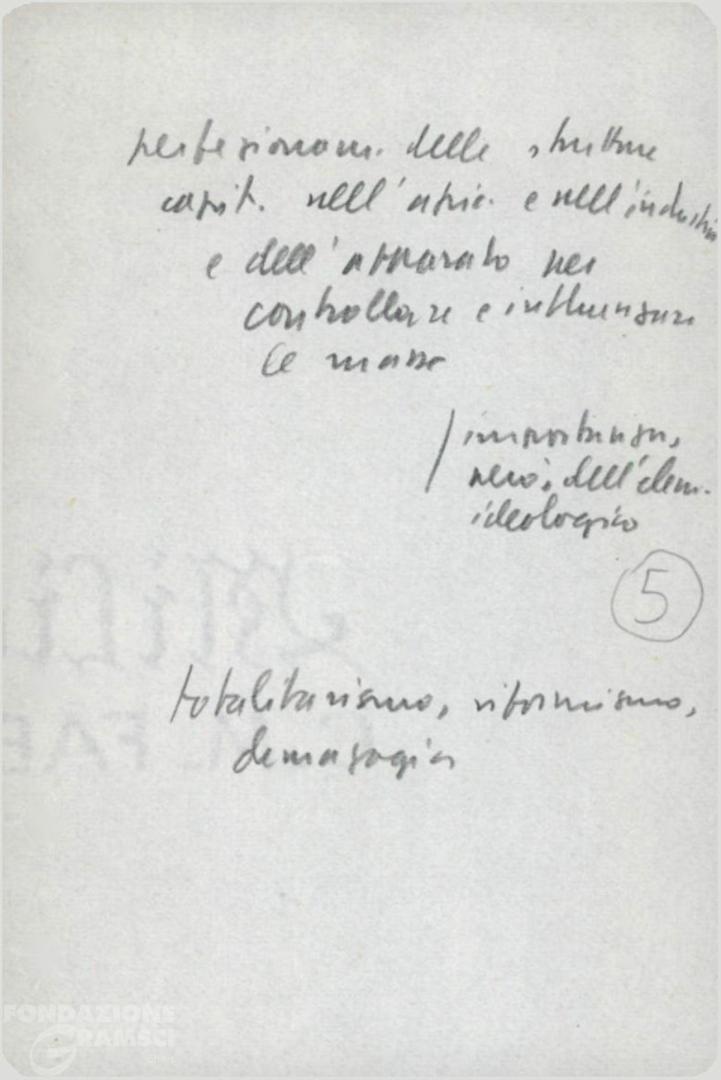 perfezionam. delle strutture
capit. nell'agric. e nell'industria
e dell'apparato per
controllare e influenzare
le masse
/ importanza,
però, dell'elem.
ideologico
5
totalitarismo, riformismo,
demagogia
FONDAZIONE
GRAMSCI